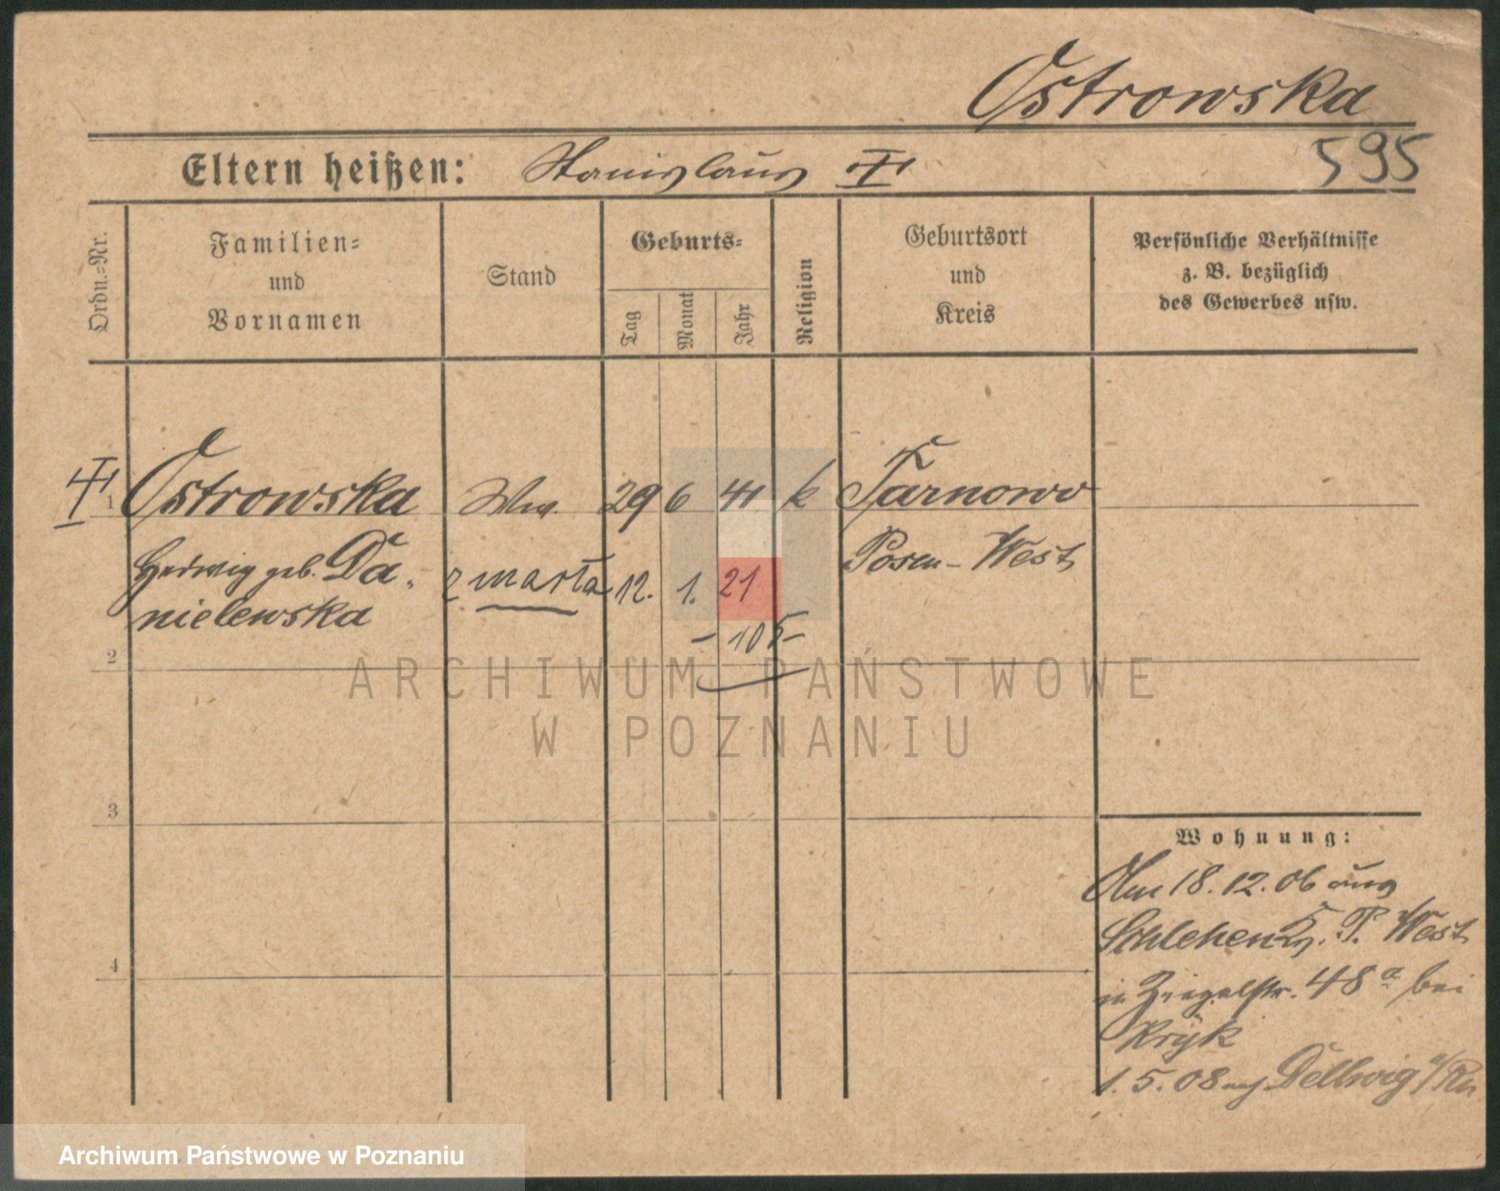 Ostrowska
595
Eltern heißen: Stanislaus
Ordn.-Nr.
Familien-
und
Vornamen
Stand
Geburts-
Tag
Monat
Jahr
Religion
Geburtsort
und
Kreis
Persönliche Verhältnisse
z. B. bezüglich
des Gewerbes usw.
1 Ostrowska Ww. 29 6 41 k Tarnowo
Hedwig geb. Da-
nielewska
zmarła 12. 1. 21
Posen-West
- 105 -
2
3
4
Wohnung:
Am 18.12.06 aus
Schlehen, P. West
in Ziegelstr. 48a bei
Kryk
1.5.08 nach Dellwig a/Rh
ARCHIWUM PAŃSTWOWE
W POZNANIU
Archiwum Państwowe w Poznaniu